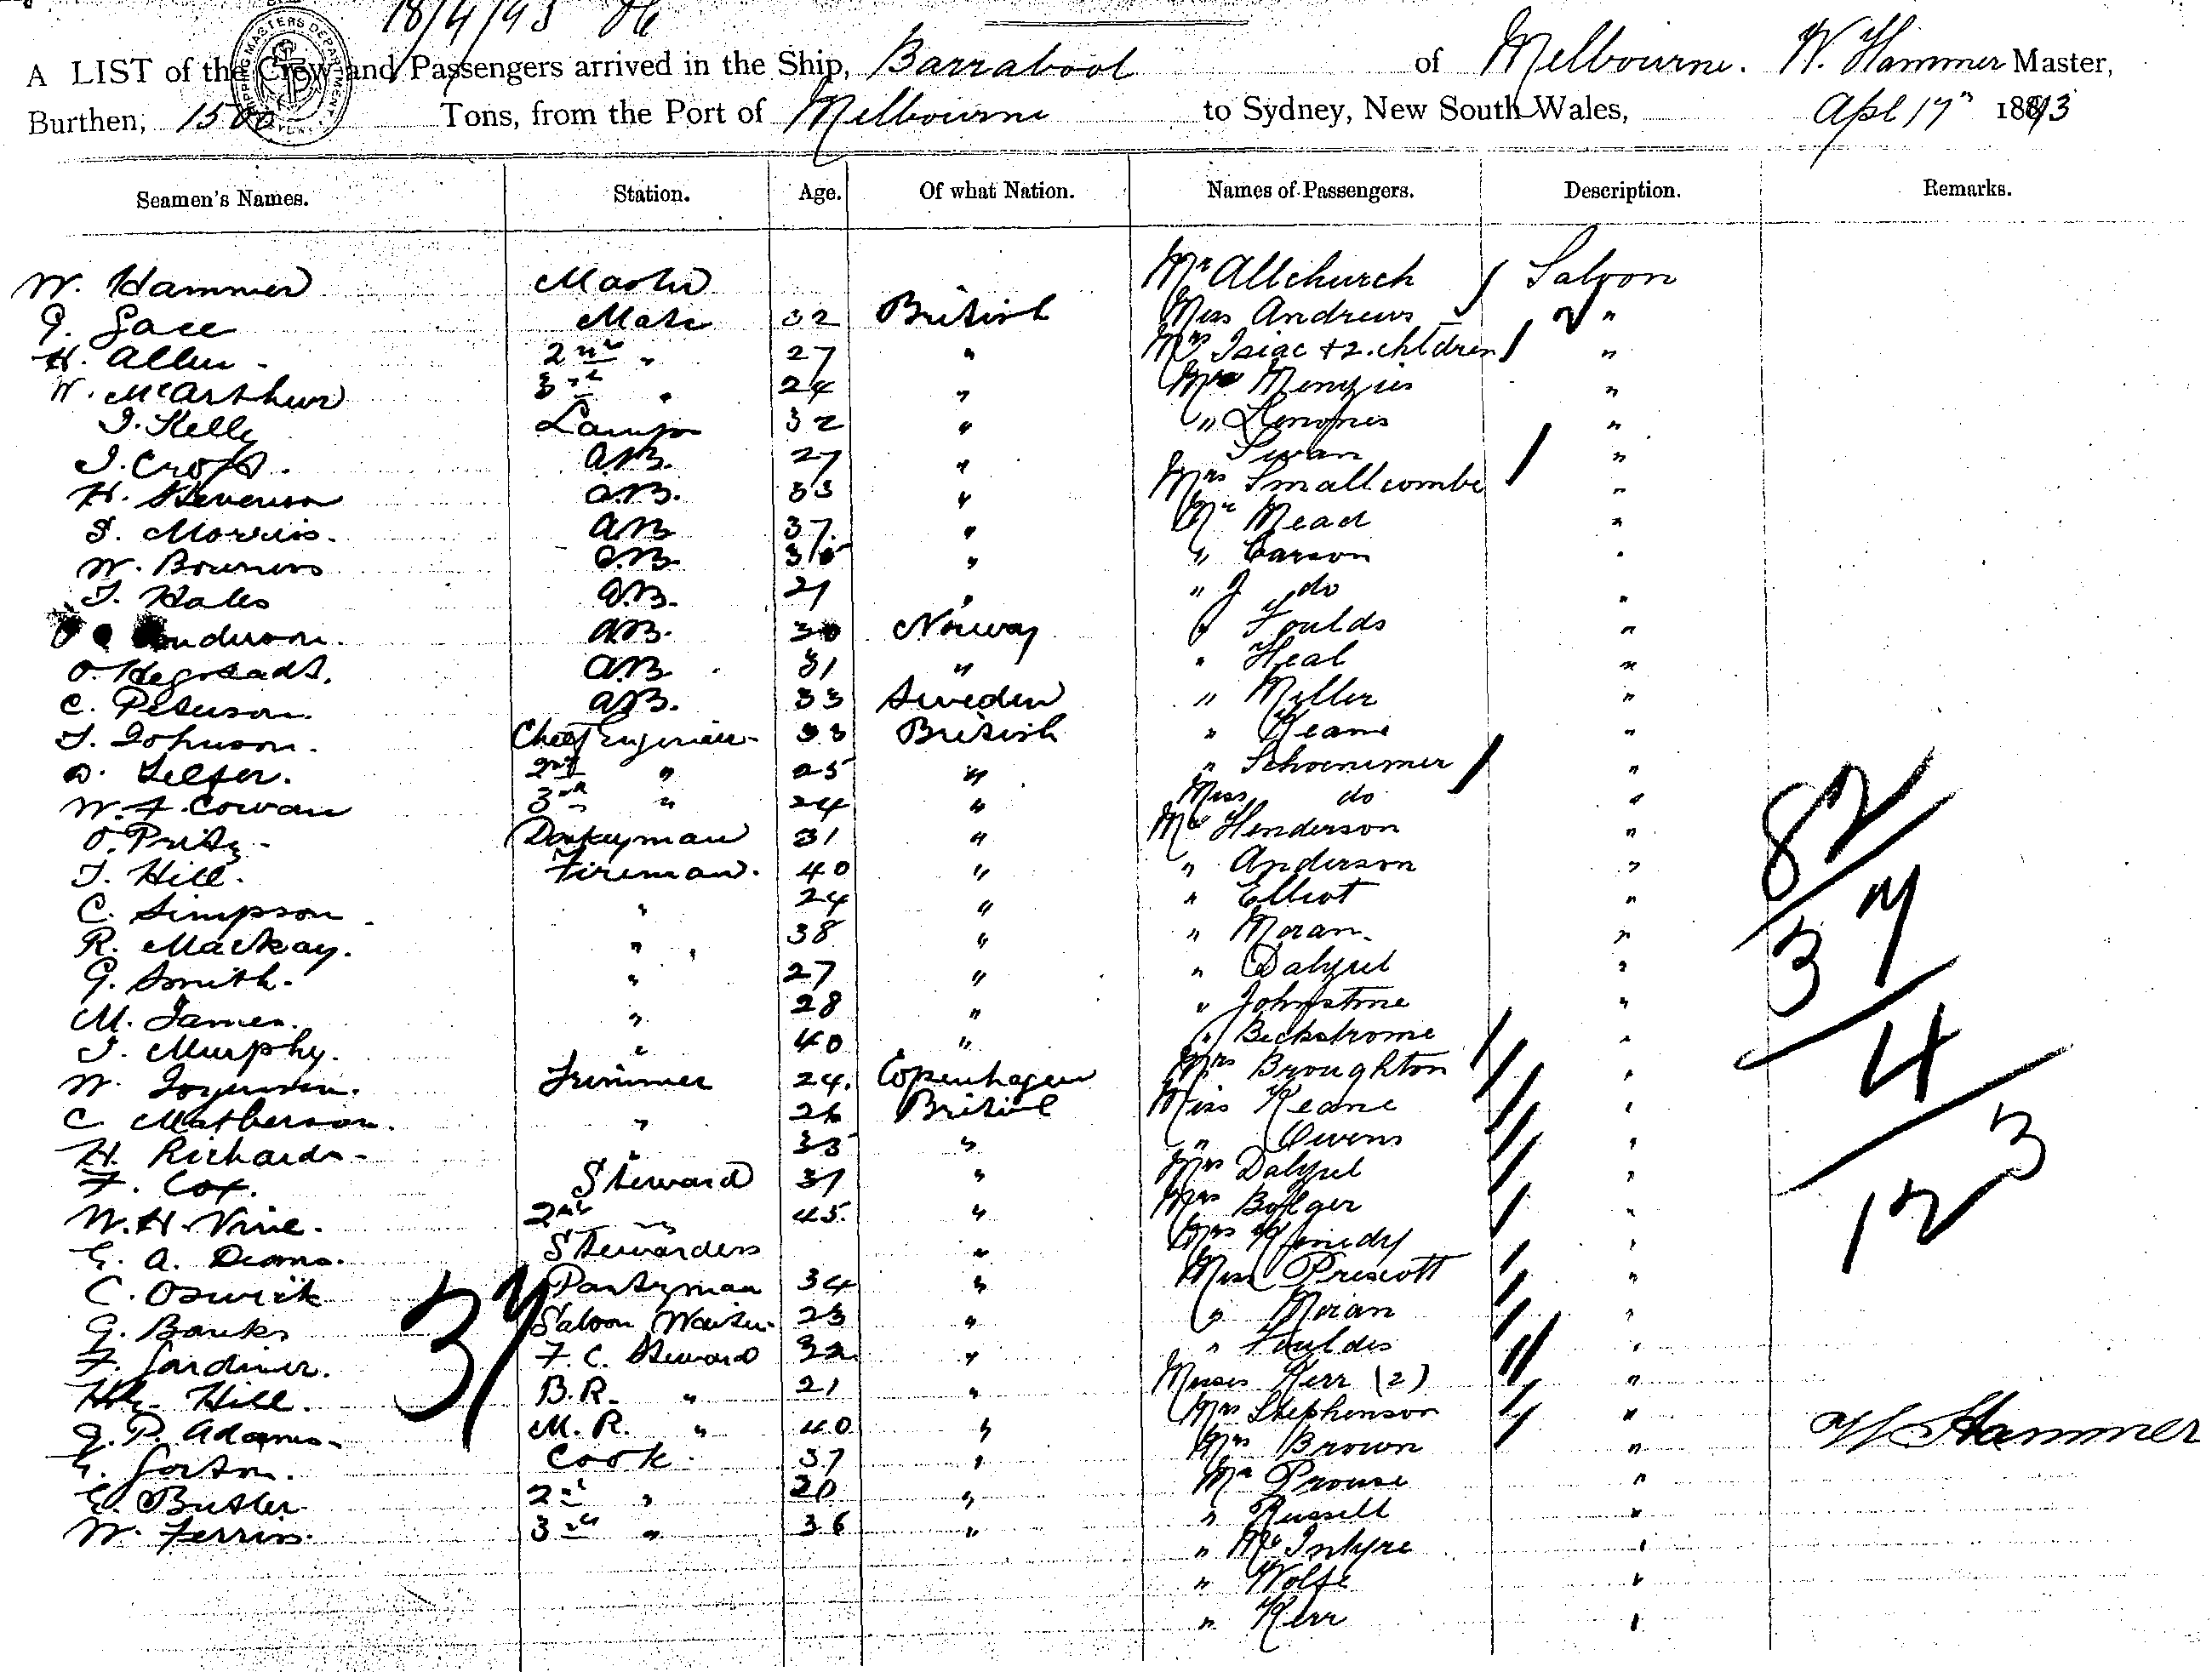 18/4/93
SHIPPING MASTERS DEPARTMENT
A LIST of the Crew and Passengers arrived in the Ship, Barrabool of Melbourne. W. Hammer Master,
Burthen, 1500 Tons, from the Port of Melbourne to Sydney, New South Wales, Apl 17th 1893
Seamen's Names. Station. Age. Of what Nation. Names of Passengers. Description. Remarks.
W. Hammer Master Mr Allchurch Saloon
G. Gace Mate 32 British Miss Andrews "
H. Allen 2nd " 27 " Mrs Isiac & 2 children "
W. McArthur 3rd " 24 " Menzies "
J. Kelly Lamps 32 " " "
J. Croft. A.B. 27 " Swan "
H. Stevenson A.B. 33 " Mrs Smallcombe "
S. Morris. AB 37. " Mr Mead "
W. A.B. " " Carson "
T. Hales A.B. 21 " " J do "
A.B. 30 Norway " Foulds "
O. A.B. 31 " " Heal "
C. Peterson. A.B. 33 Sweden " Miller "
J. Johnson. Chief Engineer 33 British " Keane "
D. Telfer. 2nd " 25 " " "
W. F. Cowan 3rd " 24 " Miss do "
O. Donkeyman 31 " Mr Henderson "
J. Hill. Fireman. 40 " " Anderson "
C. Simpson " 24 " " Elliot "
R. Mackay. " 38 " " Moran. "
G. Smith. " 27 " " Dalziel "
M. James. " 28 " " Johnstone "
J. Murphy. " 40 " " Beckstrome "
W. Trimmer 24. Copenhagen Mrs Broughton "
C. Matherson. " 26 British Miss Keane "
H. Richards " 33 " " Owens "
F. Cox. Steward 37 " Mrs Dalziel "
W. H. Vine. 2nd " 45. " Mrs Bolger "
E. A. Deans. Stewardess " Mrs Kennedy "
C. Oswick Pantryman 34 " Miss Prescott "
G. Banks Saloon Waiter 23 " " Moran "
F. Gardiner. F. C. Steward 32 " " Foulds "
Hy. Hill. B.R. " 21 " Misses Kerr (2) "
J. P. Adams M. R. " 40 " Mrs Stephenson "
G. Gorton. Cook 37 " Mrs Brown "
E. Butler 2nd " 20 " Mr Prouse "
W. Ferris. 3rd " 36 " " Russell "
" McIntyre "
" Wolfe "
" Kerr "
37
82
37
4
123
W Hammer